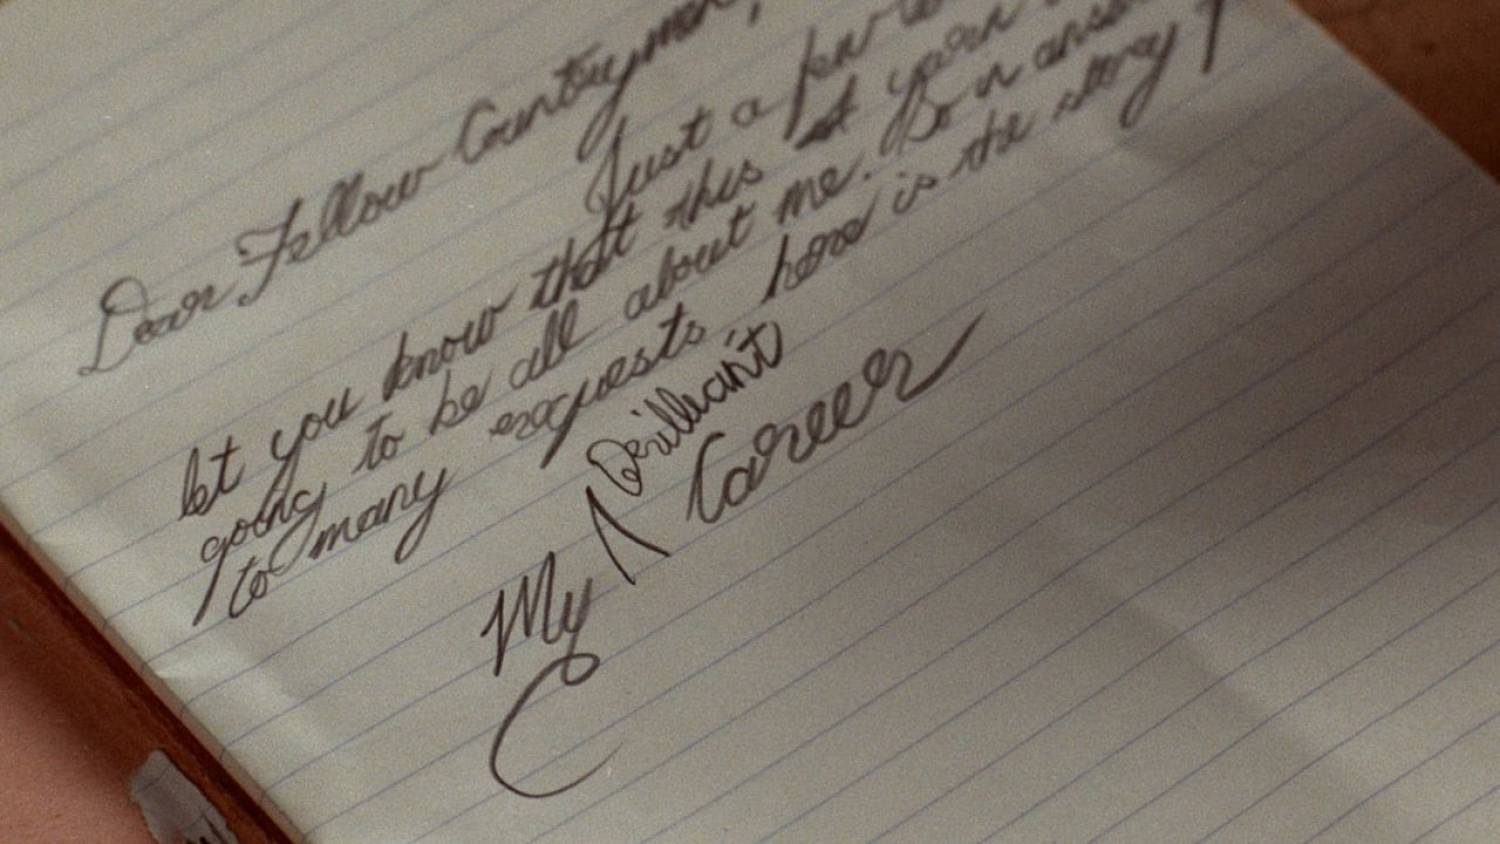 Dear Fellow Countrymen,
Just a few
let you know that this yarn
going to be all about me. So in
to many requests here is the story
Brilliant
My ^ Career
C